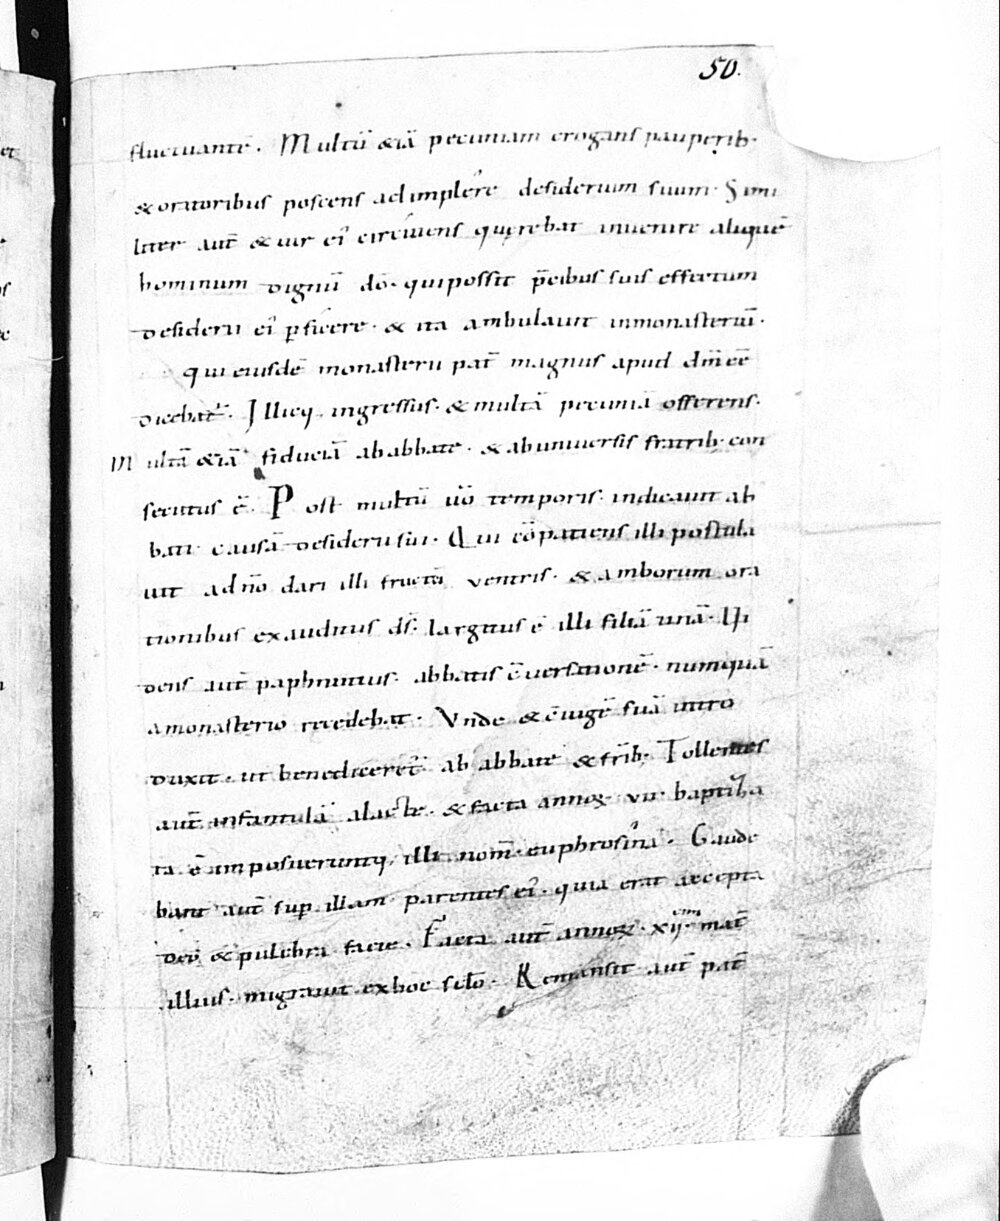 50.
fluctuantē. Multū &iā pecuniam erogans pauperib·
& oratoribus poscens adimplere desiderium suum. Simi
liter aut̄ & uir ei' circuiens querebat inuenire aliquē
hominum dignū dō· qui possit p̄cibus suis effectum
desiderii ei' perficere· & ita ambulauit inmonasteriū·
qui eiusdē monasterii pat̄ magnus apud dm̄ eē
dicebat'. Illicq; ingressus· & multā pecuniā offerens·
Multā &iā fiduciā ababbate· & abuniuersis fratrib· con
secutus ē. Post multū ūo temporis· indicauit ab
bati causā desiderii sui· Qui cōpatiens illi postula
uit ad nō dari illi fructū uentris· & amborum ora
tionibus exauditus ds̄· largitus ē illi filiā unā· Ui
dens aut̄ paphnutius· abbatis c̄uersationē· numquā
amonasterio recedebat· Vnde & c̄iugē suā intro
duxit· ut benediceret' ab abbate & frīb· Tollentes
aut̄ infantulā alacre· & facta annoꝝ· vii· baptiza
ta ē imposueruntq; illi nom̄ euphrosina. Gaude
bant aut̄ sup illam parentes ei'· quia erat accepta
deō & pulchra facie. Facta aut̄ annoꝝ· xii· mat̄
illius· migrauit exhoc sclo· Remansit aut̄ pat̄